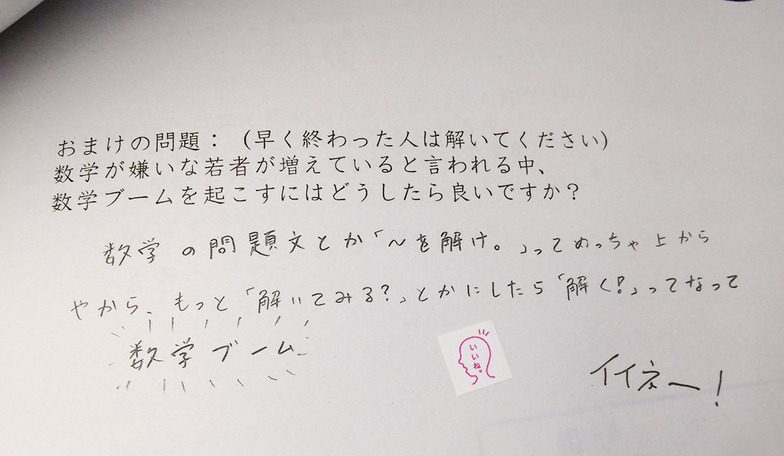 おまけの問題：（早く終わった人は解いてください）
数学が嫌いな若者が増えていると言われる中、
数学ブームを起こすにはどうしたら良いですか？
数学の問題文とか「～を解け。」ってめっちゃ上から
やから、もっと「解いてみる?」とかにしたら「解く!」ってなって
数学ブーム
いいね。
イイネー!